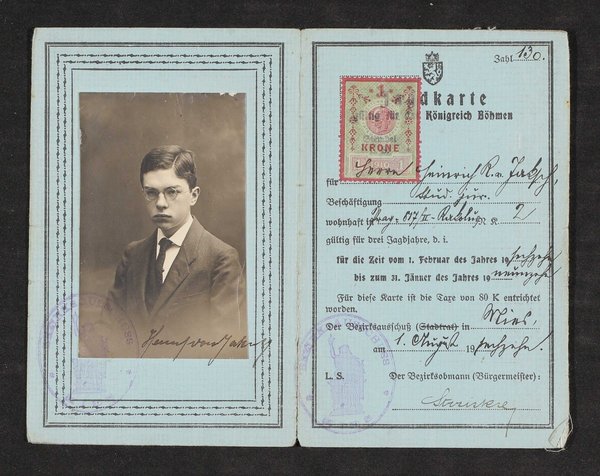 Zahl 130.
dkarte
Königreich Böhmen
1
KRONE
1
für Herrn Heinrich R. v. Jaksch,
Beschäftigung stud. jur.
wohnhaft Prag
2
gültig für drei Jagdjahre, d. i.
für die Zeit vom 1. Februar des Jahres 19 sechzehn
bis zum 31. Jänner des Jahres 19 neunzehn
Für diese Karte ist die Taxe von 80 K entrichtet
worden.
Der Bezirksausschuß (Stadtrat) in Mies,
am 1. August 19 sechzehn.
L. S. Der Bezirksobmann (Bürgermeister):